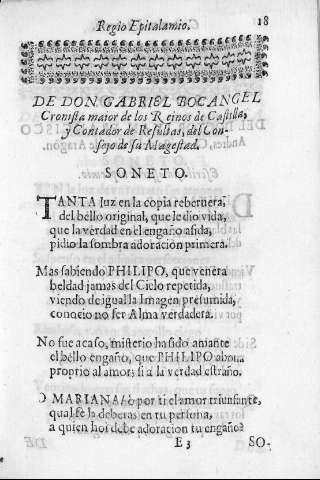 Regio Epitalamio. 18
DE DON GABRIEL BOCANGEL
Cronista maior de los Reinos de Castilla,
y Contador de Resultas, del Con-
sejo de su Magestad.
SONETO.
TANTA luz en la copia reberuera,
del bello original, que le dio vida,
que la verdad en el engaño asida,
pidio la sombra adoracion primera.
Mas sabiendo PHILIPO, que venera
beldad jamas del Cielo repetida,
viendo de igual la Imagen presumida,
conocio no ser Alma verdadera.
No fue acaso, misterio ha sido amante
el bello engaño, que PHILIPO abona
proprio al amor: si a la verdad estraño.
O MARIANA! ò por ti el amor triunfante,
qual se la deberas en tu persona,
a quien hoi debe adoracion tu engaño?
E 3 SO-